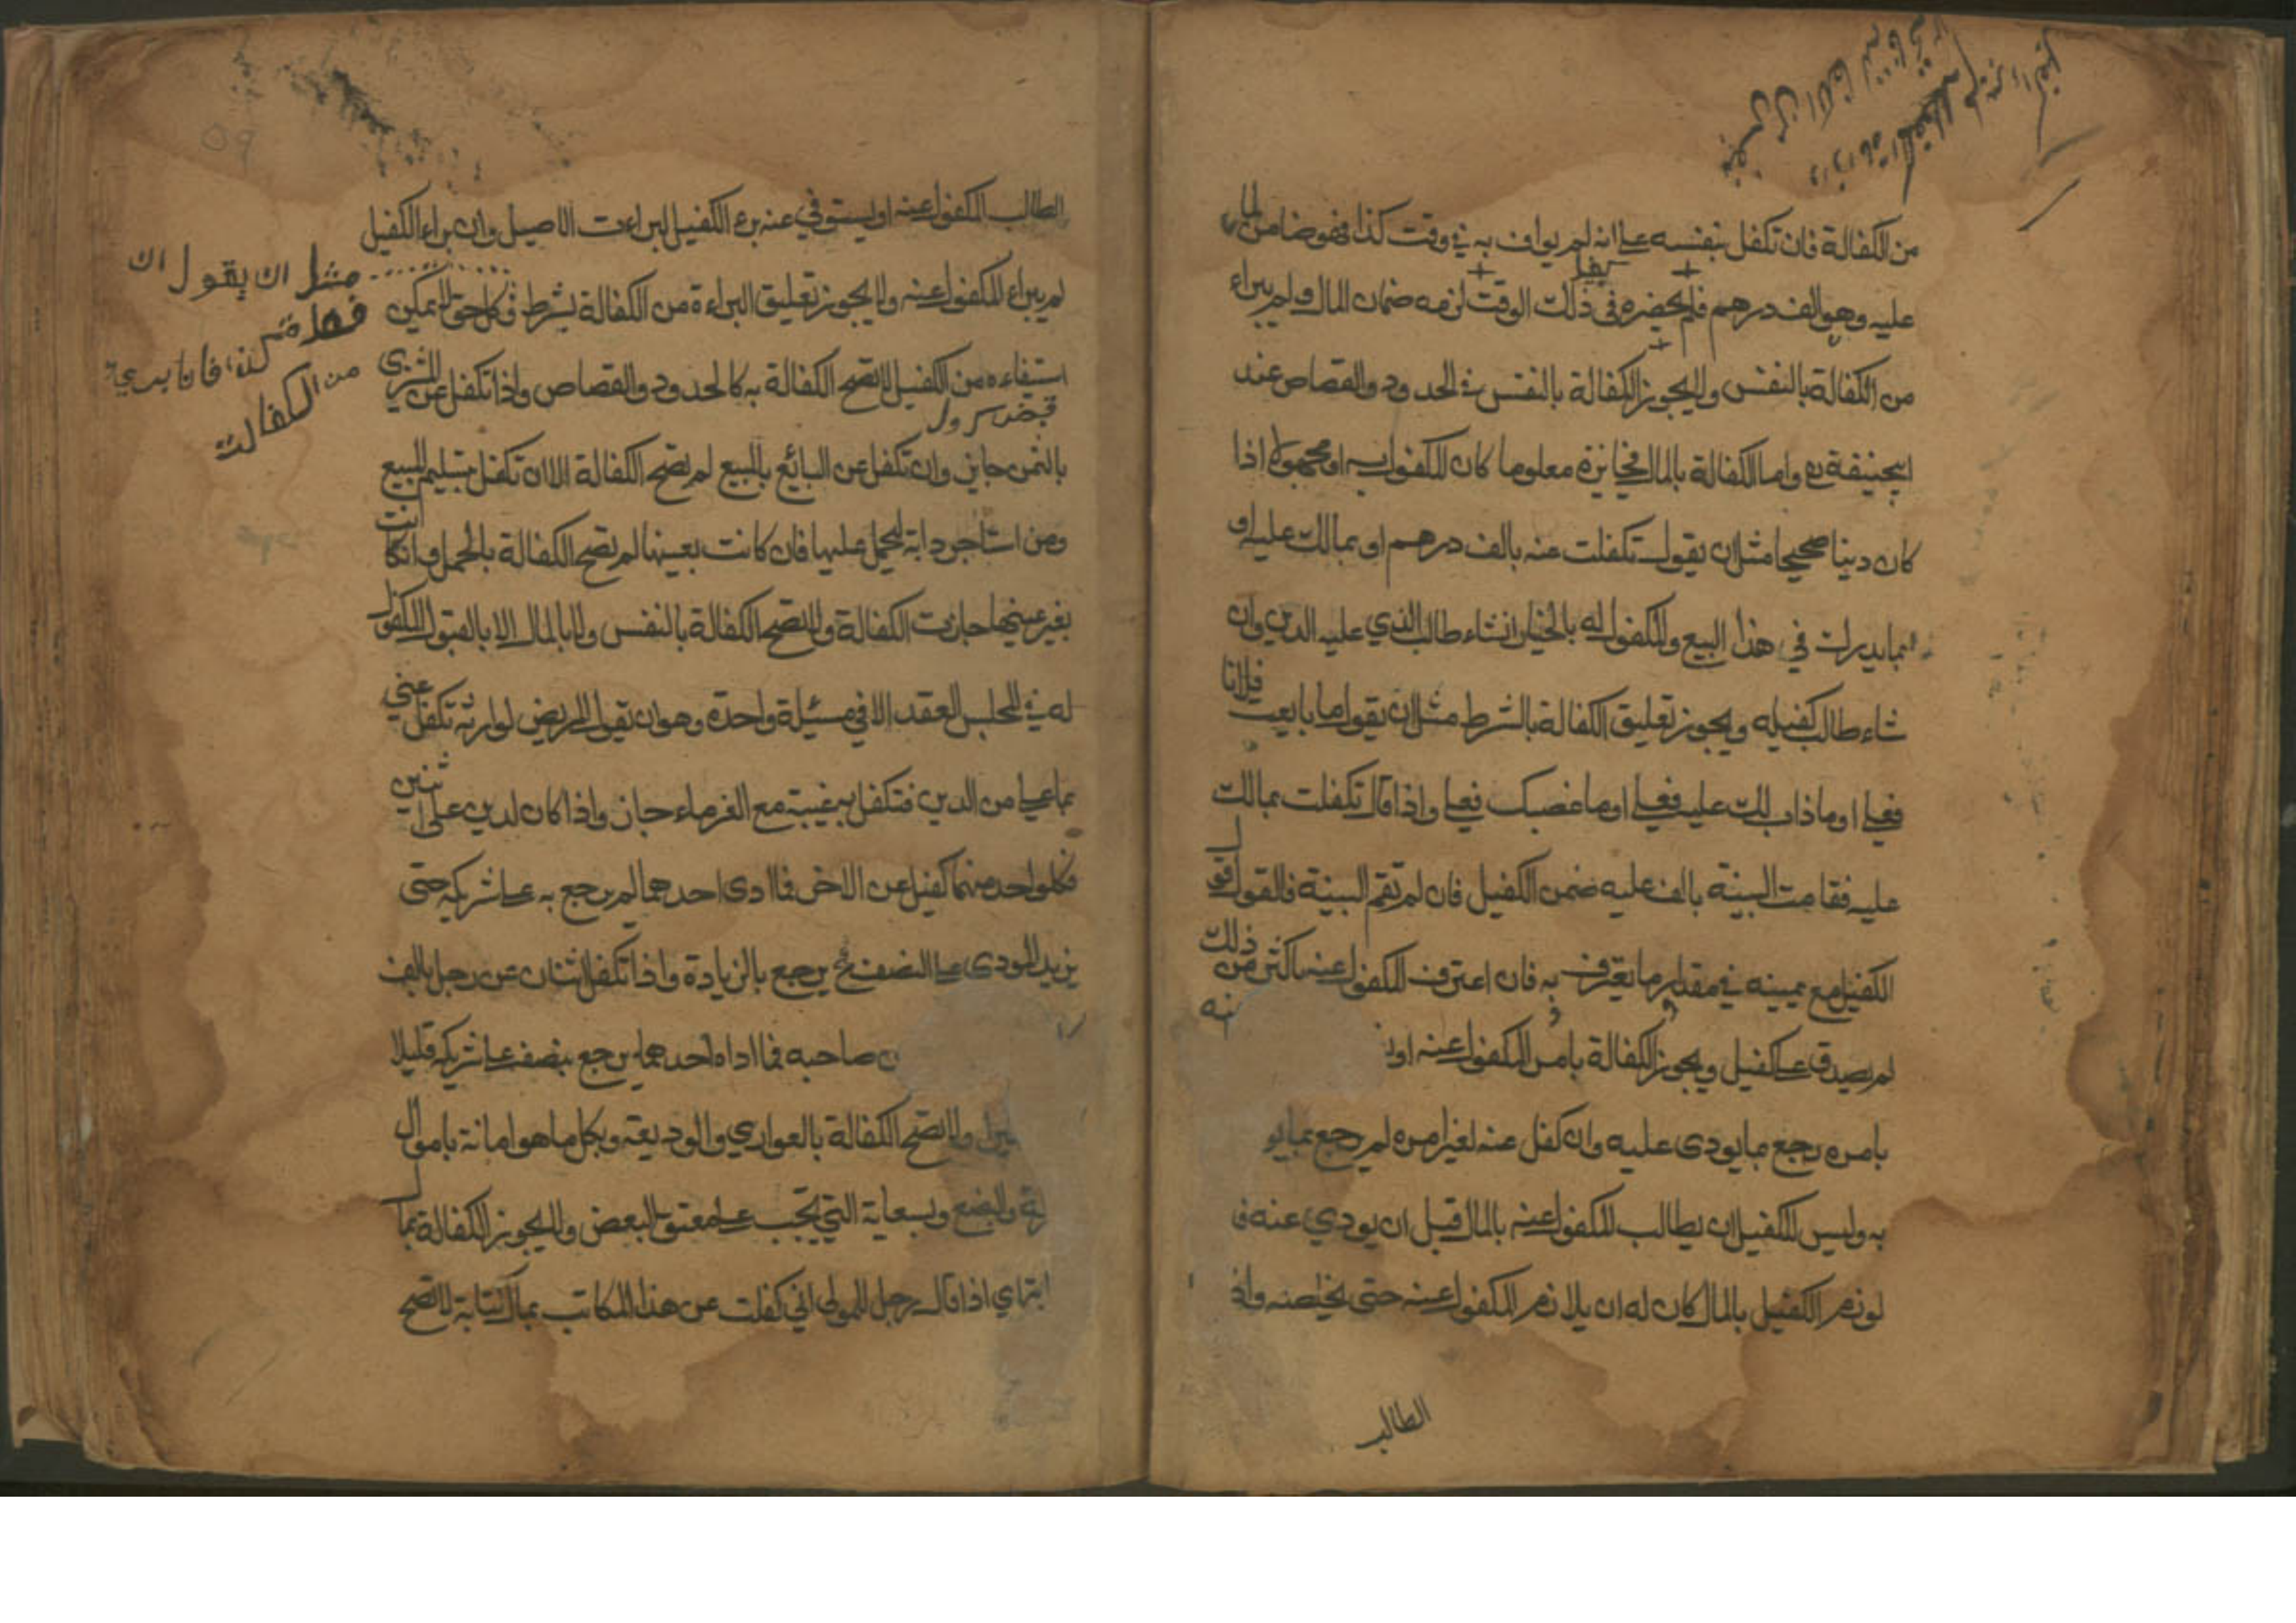 من الكفالة فان تكفل بنفسه على انه لم يواف به في وقت كذا فهو ضامن لما
عليه وهو الف درهم فلم يحضره في ذلك الوقت لزمه ضمان المال ولم يبراء
من الكفالة بالنفس ولا يجوز الكفالة بالنفس في الحدود والقصاص عند
ابيحنيفة ره واما الكفالة بالمال فجايزة معلوما كان المكفول به او مجهولا اذا
كان دينا صحيحا مثل ان يقول تكفلت عنه بالف درهم او بمالك عليه او
بما يدرك في هذا البيع والمكفول له بالخيار انشاء طالب الذي عليه الدين وان
شاء طالب كفيله ويجوز تعليق الكفالة بالشرط مثل ان يقول ما بايعت فلانا
فعلي او ما ذاب لك عليه فعلي او ما غصبك فعلي واذا قال تكفلت بمالك
عليه فقامت البينة بالف عليه ضمن الكفيل فان لم تقم البينة فالقول قول
الكفيل مع يمينه في مقدار ما يعترف به فان اعترف المكفول عنه باكثر من ذلك
لم يصدق على كفيل ويجوز الكفالة بامر المكفول عنه او
بامره رجع ما يودى عليه وان كفل عنه لغير امره لم يرجع بما يو
به وليس للكفيل ان يطالب المكفول عنه بالمال قبل ان يودي عنه ف
لوزم الكفيل بالمال كان له ان يلازم المكفول عنه حتى يخلصنه واذ
الطالب
الطالب المكفول عنه او يستوفي عنه برء الكفيل البراءت الاصيل وان براء الكفيل
لم يبراء المكفول عنه ولا يجوز تعليق البراءة من الكفالة بشرط وكل حق لا يمكن
استيفاءه من الكفيل لا تصح الكفالة به كالحدود والقصاص واذا تكفل عن المشتري
بالثمن جايز وان تكفل عن البائع بالمبيع لم تصح الكفالة الا ان تكفل بتسليم المبيع
ومن استاجر دابة للحمل عليها فان كانت بعينها لم تصح الكفالة بالحمل وانكانت
بغير عينها جازت الكفالة ولا تصح الكفالة بالنفس ولا بالمال الا بالقبول المكفول
له في المجلس العقد الا في مسئلة واحدة وهو ان يقول المريض لوارثه تكفل عني
بما علي من الدين فتكفل به غيبة مع الغرماء جاز واذا كان لدين على اثنين
فكل واحد منهما كفيل عن الاخر فما ادى احدهما لم يرجع به على شريكه حتى
يزيد المودى على النصف فح يرجع بالزيادة واذا تكفل اثنان عن رجل بالف
صاحبه فما اداه احدهما يرجع بنصف على شريكه قليلا
ولا تصح الكفالة بالعواري والوديعة وبكل ما هو امانة باموال
والبضع وبسعاية التي تجب على معتق البعض ولا يجوز الكفالة بما
اذا قال رجل للمولى اني كفلت عن هذا المكاتب بمال كتابة لا تصح
مثل ان يقول ان
فانا بريء
من الكفالت